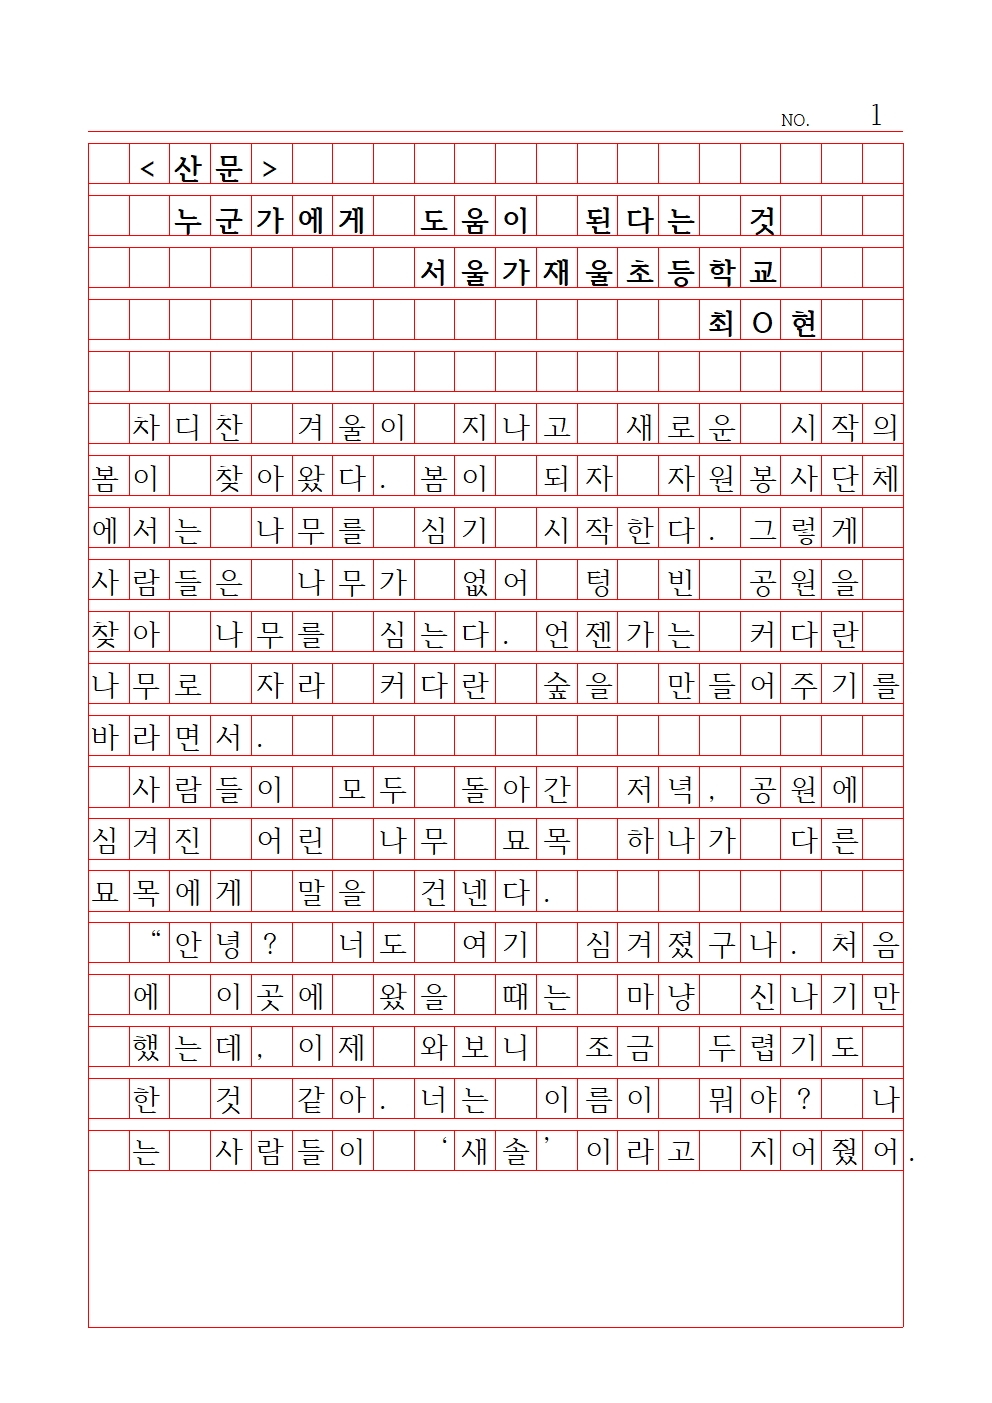 NO. 1
<산문>
누군가에게 도움이 된다는 것
서울가재울초등학교
최O현
차디찬 겨울이 지나고 새로운 시작의
봄이 찾아왔다. 봄이 되자 자원봉사단체
에서는 나무를 심기 시작한다. 그렇게
사람들은 나무가 없어 텅 빈 공원을
찾아 나무를 심는다. 언젠가는 커다란
나무로 자라 커다란 숲을 만들어주기를
바라면서.
사람들이 모두 돌아간 저녁, 공원에
심겨진 어린 나무 묘목 하나가 다른
묘목에게 말을 건넨다.
“안녕? 너도 여기 심겨졌구나. 처음
에 이곳에 왔을 때는 마냥 신나기만
했는데, 이제 와보니 조금 두렵기도
한 것 같아. 너는 이름이 뭐야? 나
는 사람들이 ‘새솔’이라고 지어줬어.